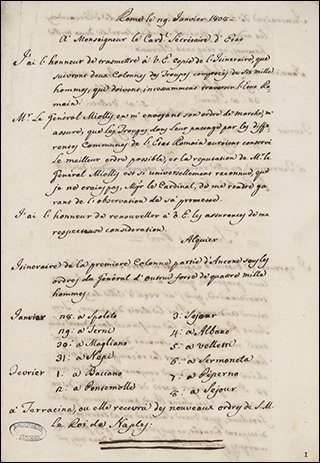 Rome le 29. Janvier 1808.
A Monseigneur le Card. Sécrétaire d'Etat
J'ai l'honneur de trasmettre à V. E. copie de l'Itineraire, que
suivront deux Colonnes des Troupes composées de six mille
hommes, qui doivent incessamment traverser l'Etat Ro-
main.
Mr. Le Général Miolly, en m'envoyant son ordre de marche, m'
assure, que les Troupes dans leur passage par les diffe-
rences Communes de l'Etat Romain auroient conservé
le meilleur ordre possible, et la reputation de Mr. le
Général Miolly est si universellement reconnue, que
je ne crains pas, Mgr le Cardinal, de me rendre ga-
rant de l'observation de sa promesse.
J'ai l'honneur de renouveller à V. E. les assurances de ma
respectueuse consideration.
Alquier
Itineraire de la premiere Colonne partie d'Ancone sous les
ordres du Général d' forte de quatre mille
hommes.
Janvier 28: a Spoleto
29: a Terni
30: a Magliano
31: a Nepi
Fevrier 1: a Baccano
2: a Pontemolle
3: Sejour
4: a Albano
5: a Velletri
6: a Sermoneta
7: a Piperno
8: a Sejour
a Terracina, ou elle recevra des nouveaux ordres de S. M.
Le Roi de Naples.
1